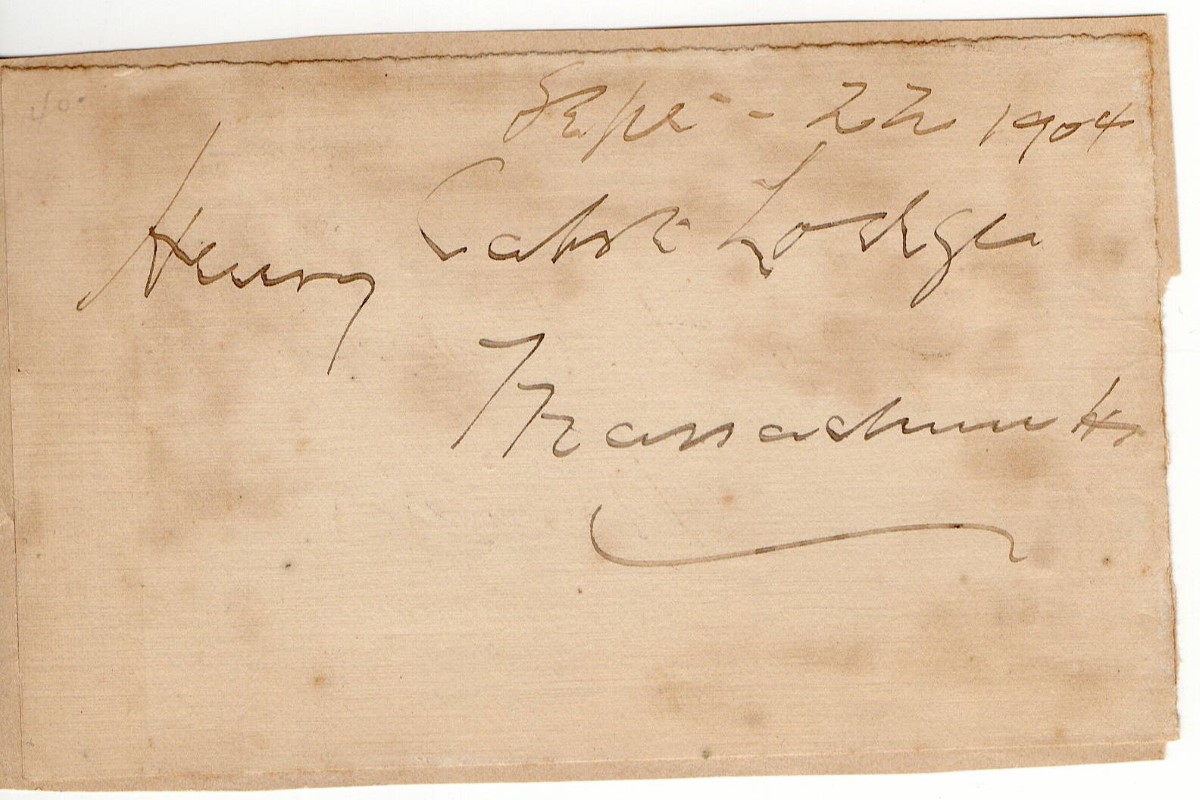 Sept - 22 1904
Henry Cabot Lodge
Massachusetts